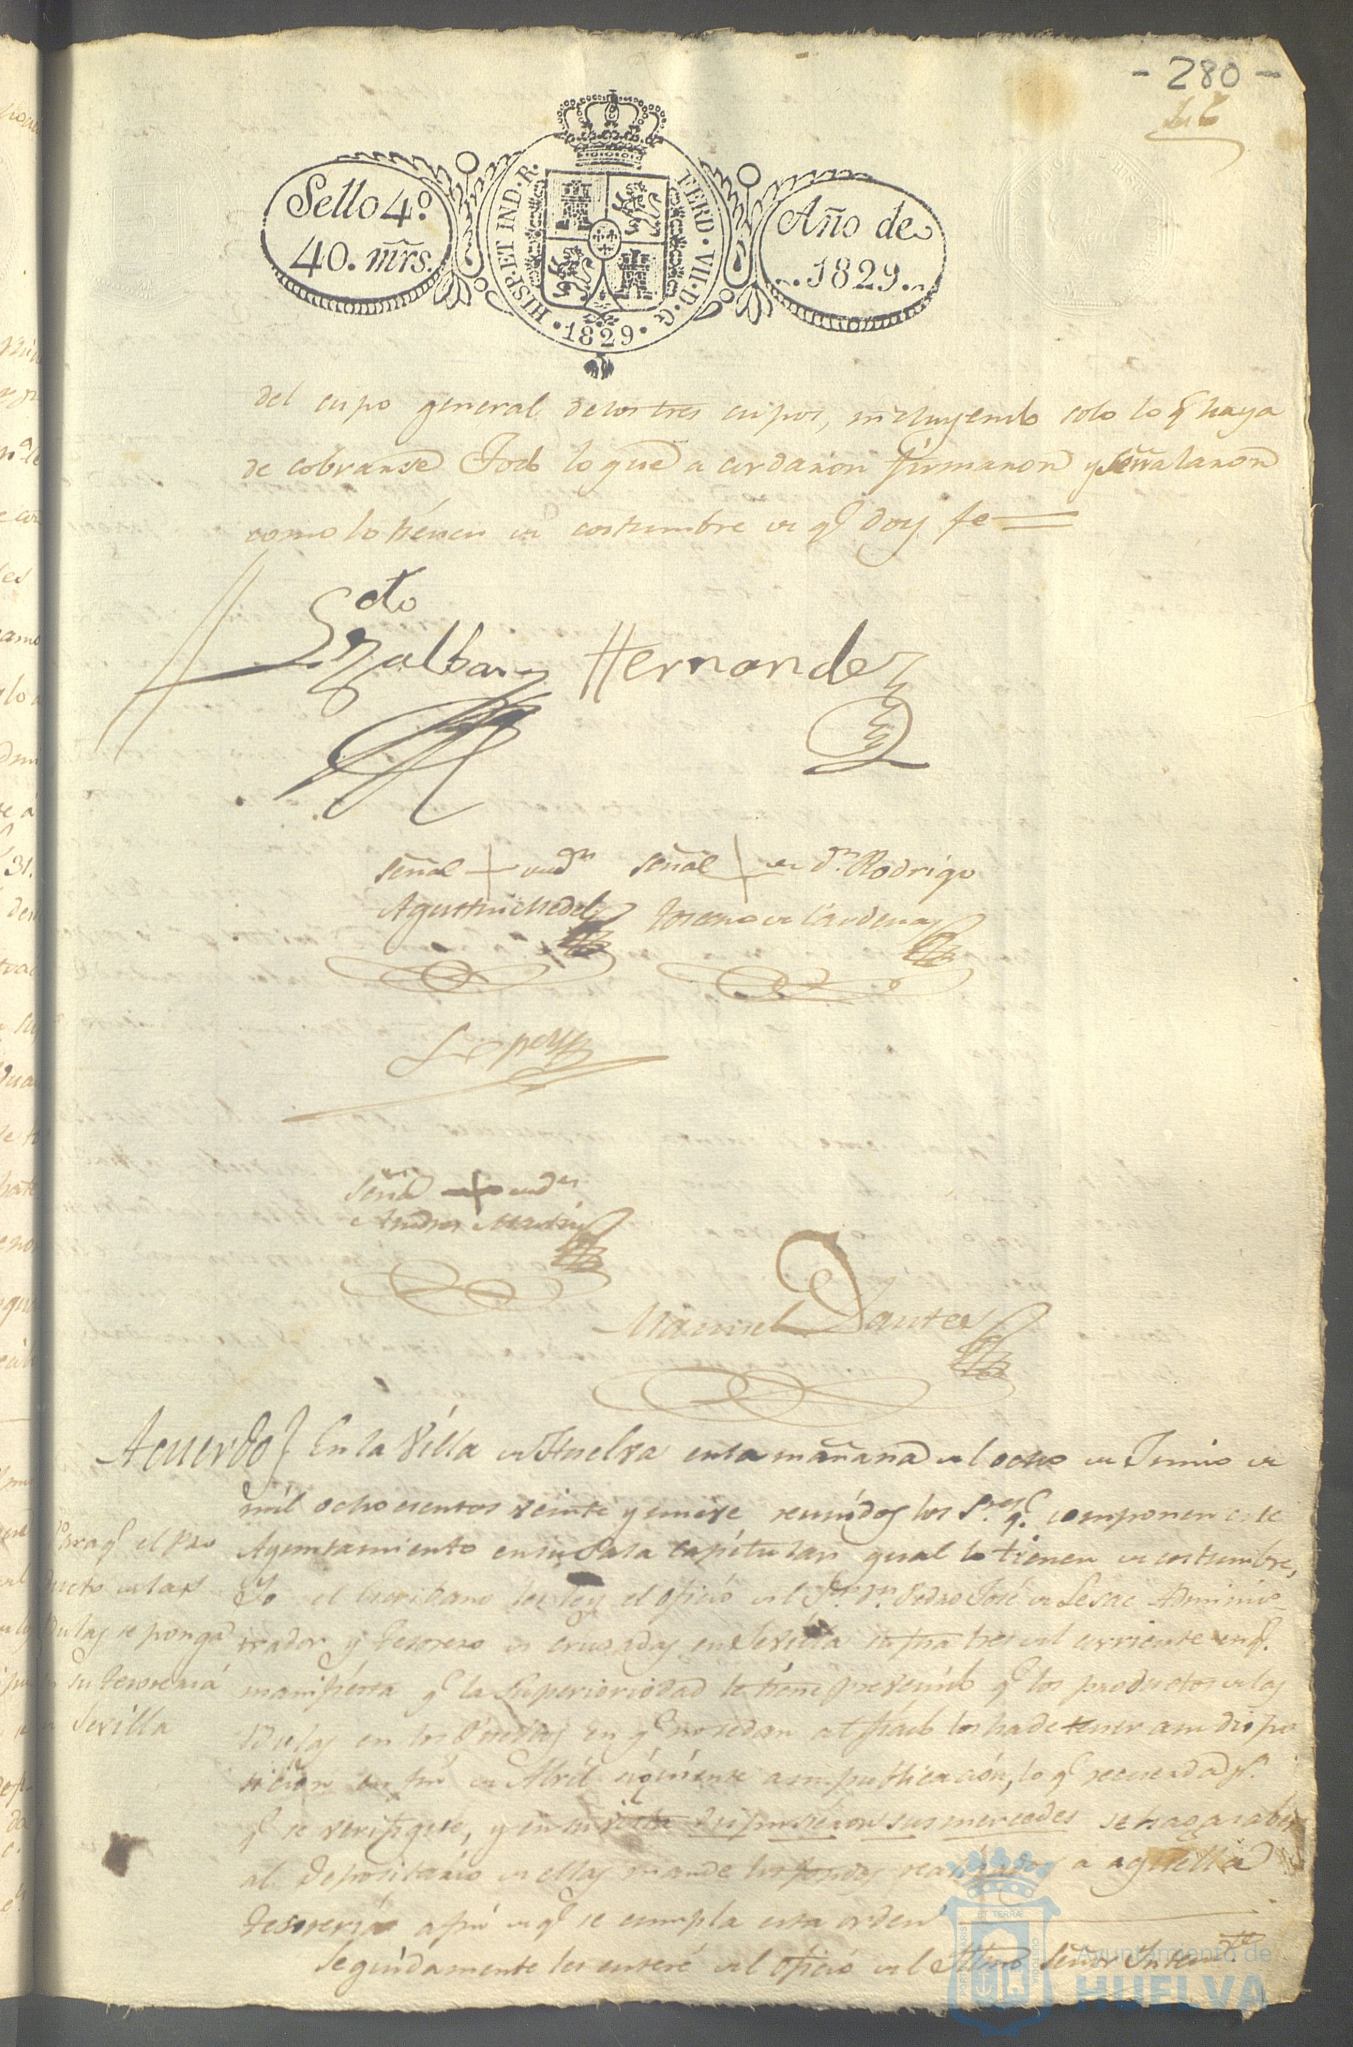 - 280 -
Sello 4º
40. mrs.
HISP. ET IND. R.
FERD. VII. D. G.
· 1829 ·
Año de
1829
del cupo general de los tres cupos, incluyendo solo lo q haya
de cobranse Todo lo que acordaron firmaron y señalaron
como lo tienen de costumbre de q doy fe
Hernandez
señal + de dn señal + de dn Rodrigo
Agustin Medel de Cardenas
Lopez
señal + de dn
Andres Martin
Manuel Dantes
Acuerdo En la Villa de Huelva en la mañana del ocho de Junio de
mil ochocientos veinte y nueve reunidos los Sres q componen este
Ayuntamiento en su Sala Capitular, qual lo tienen de costumbre,
Yo el Escribano les ley el oficio del Sr dn Pedro José de Lesac Adminis
trador y Tesorero de Cruzadas en Sevilla su fha tres del corriente en q
manifiesta q la Superioridad le tiene prevenido q los productos de las
Bulas en los Pueblos en q no se dan al fiado los ha de tener a su dispo
sicion en fin de Abril siguiente a su publicación, lo q
q se verifique, y en su vista dispusieron sus mercedes se haga saber
al Depositario de ellas mande los fondos realizados a aquella
Tesoreria a fin de q se cumpla esta orden
Seguidamente les enteré del oficio del Señor Intente
Para q el pro
ducto de las
Bulas se ponga
en su Tesoreria
en Sevilla
Ayuntamiento de
HUELVA